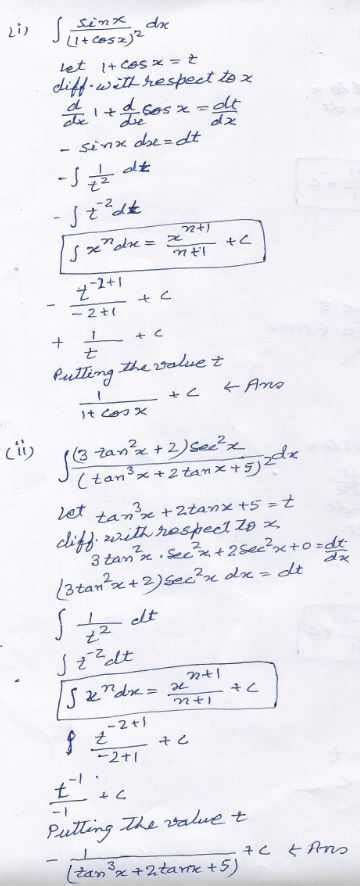 (i) ∫ sinx/(1+cosx)² dx
Let 1+cosx = t
diff. with respect to x
d/dx 1 + d/dx cosx = dt/dx
- sinx dx = dt
-∫ 1/t² dt
-∫ t⁻² dt
∫xⁿdx = xⁿ⁺¹/n+1 + c
- t⁻²⁺¹/-2+1 + c
+ 1/t + c
Putting the value t
1/1+cosx + c ← Ans
(ii) ∫ (3 tan²x + 2) sec²x/(tan³x + 2 tanx + 5)² dx
Let tan³x + 2tanx + 5 = t
diff. with respect to x,
3 tan²x . sec²x + 2sec²x + 0 = dt/dx
(3tan²x + 2) sec²x dx = dt
∫ 1/t² dt
∫ t⁻² dt
∫xⁿdx = xⁿ⁺¹/n+1 + c
t⁻²⁺¹/-2+1 + c
t⁻¹/-1 + c
Putting the value t
- 1/(tan³x + 2tanx + 5) + c ← Ans